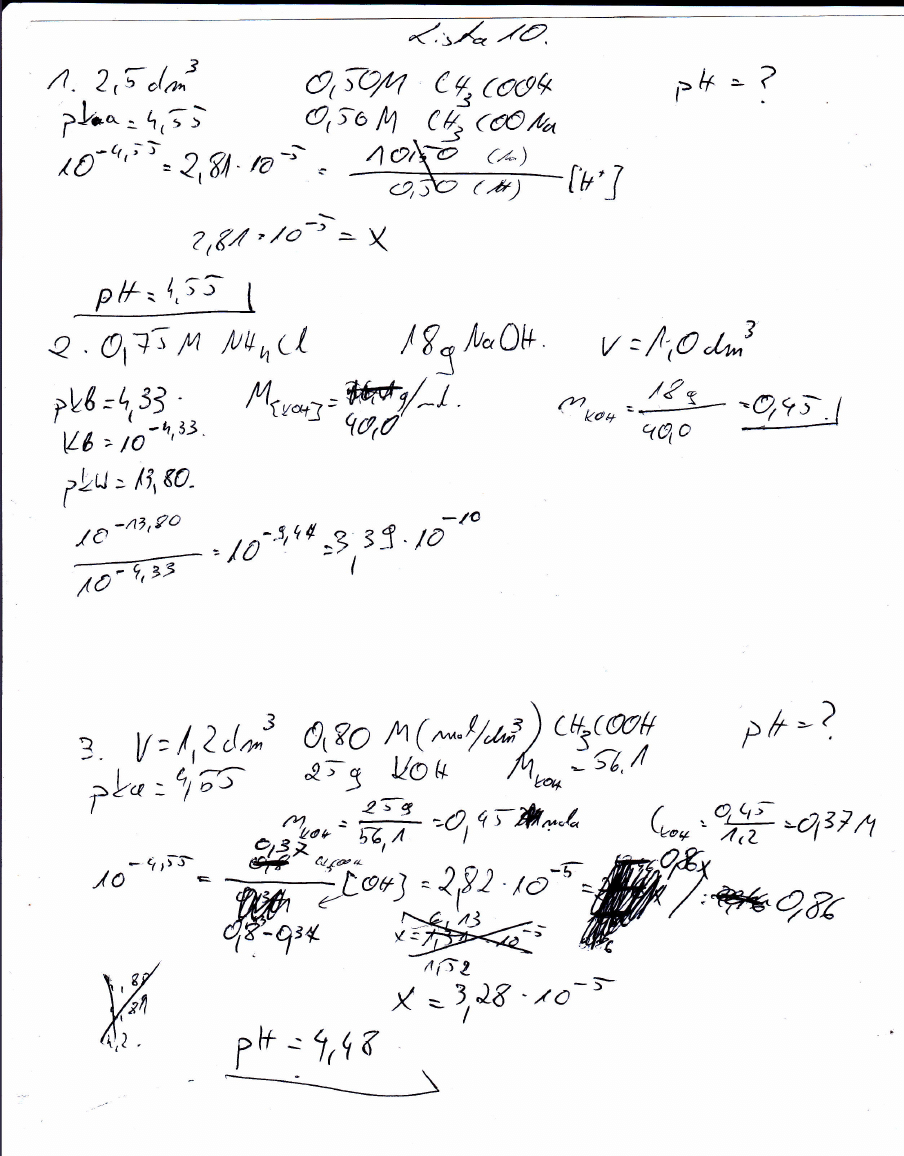 Lista 10.
1. 2,5 dm³ 0,50M CH₃COOH pH = ?
pka = 4,55 0,50 M CH₃COONa
10⁻⁴,⁵⁵ = 2,81 · 10⁻⁵ = 0,50 / 0,50 [H⁺]
2,81 · 10⁻⁵ = X
pH = 4,55
2. 0,75 M NH₄Cl 18g NaOH. V = 1,0 dm³
pkb = 4,33. M[KOH] = 40,0 g/mol. mKOH = 18 g / 40,0 = 0,45
Kb = 10⁻⁴,³³.
pkW = 13,80.
10⁻¹³,⁸⁰ / 10⁻⁴,³³ = 10⁻⁹,⁴⁷ = 3,39 · 10⁻¹⁰
3. V = 1,2 dm³ 0,80 M (mol/dm³) CH₃COOH pH = ?
pka = 4,55 25 g KOH MKOH = 56,1
mKOH = 25g / 56,1 = 0,45 mola CKOH = 0,45 / 1,2 = 0,37 M
10⁻⁴,⁵⁵ = 0,37 / 0,8 - 0,37 [OH] = 2,82 · 10⁻⁵ = 0,86x / : 0,86
X = 3,28 · 10⁻⁵
pH = 4,48